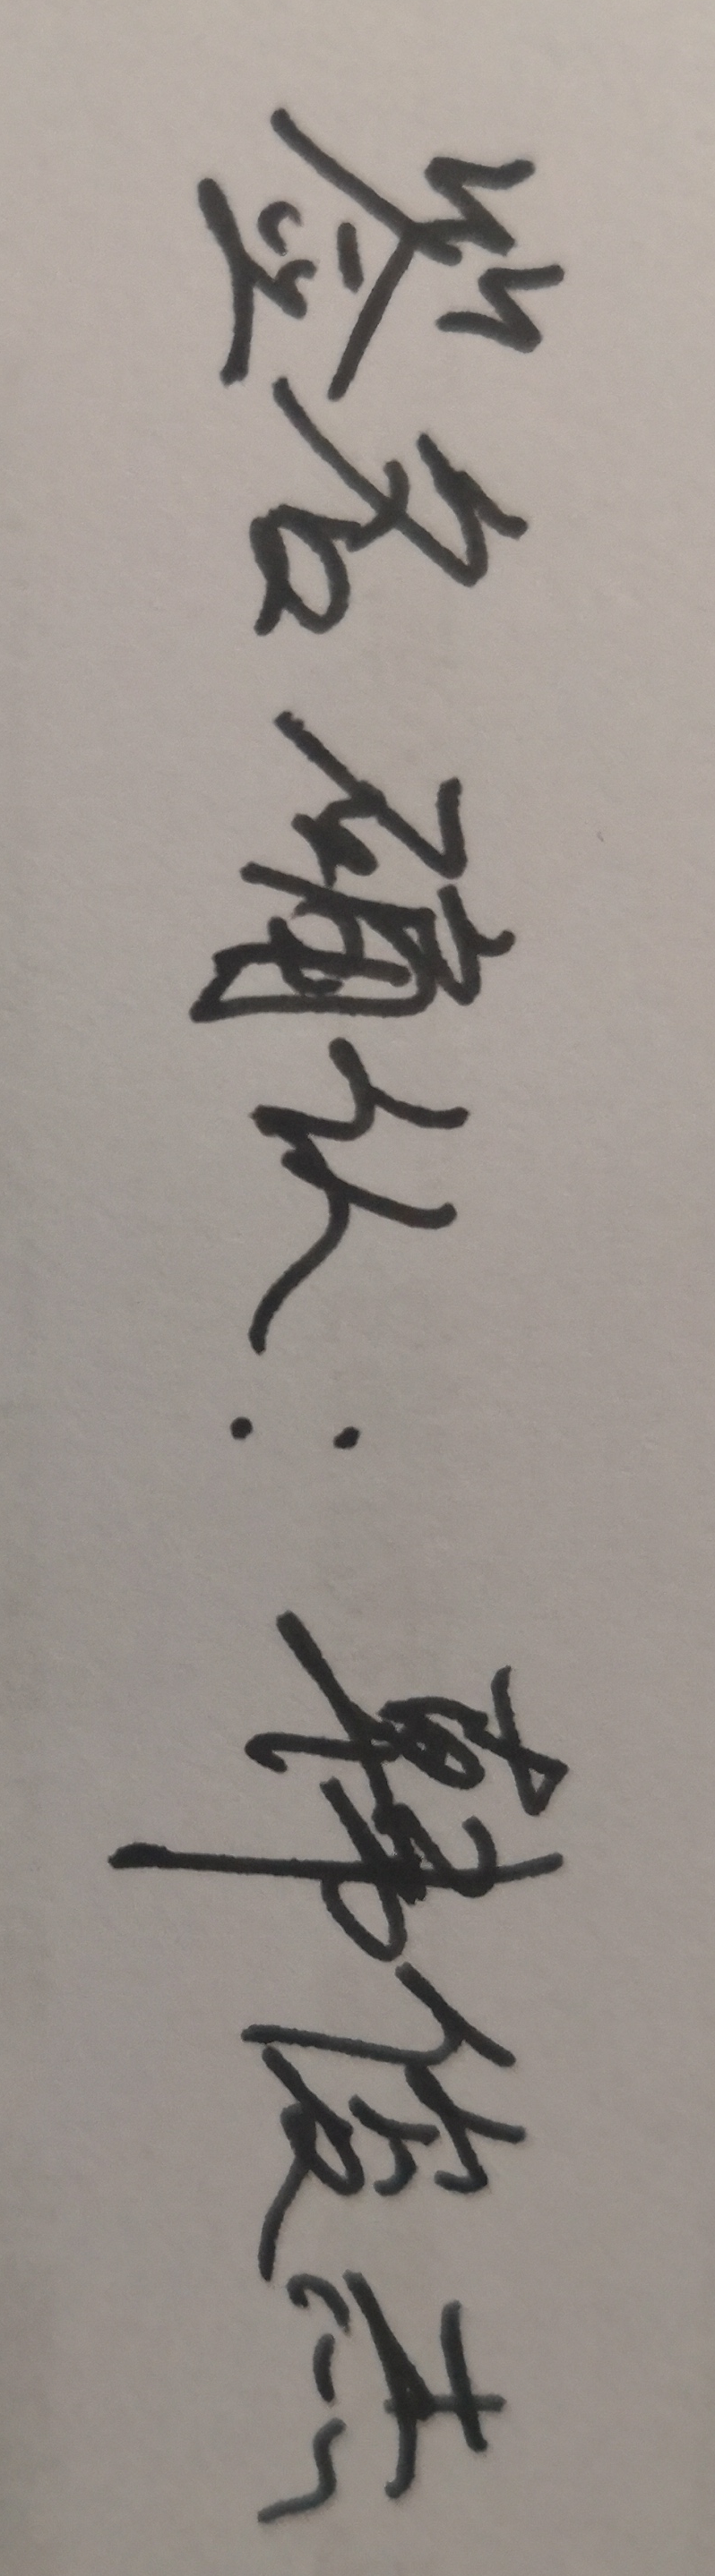 签名确认：韩俊杰